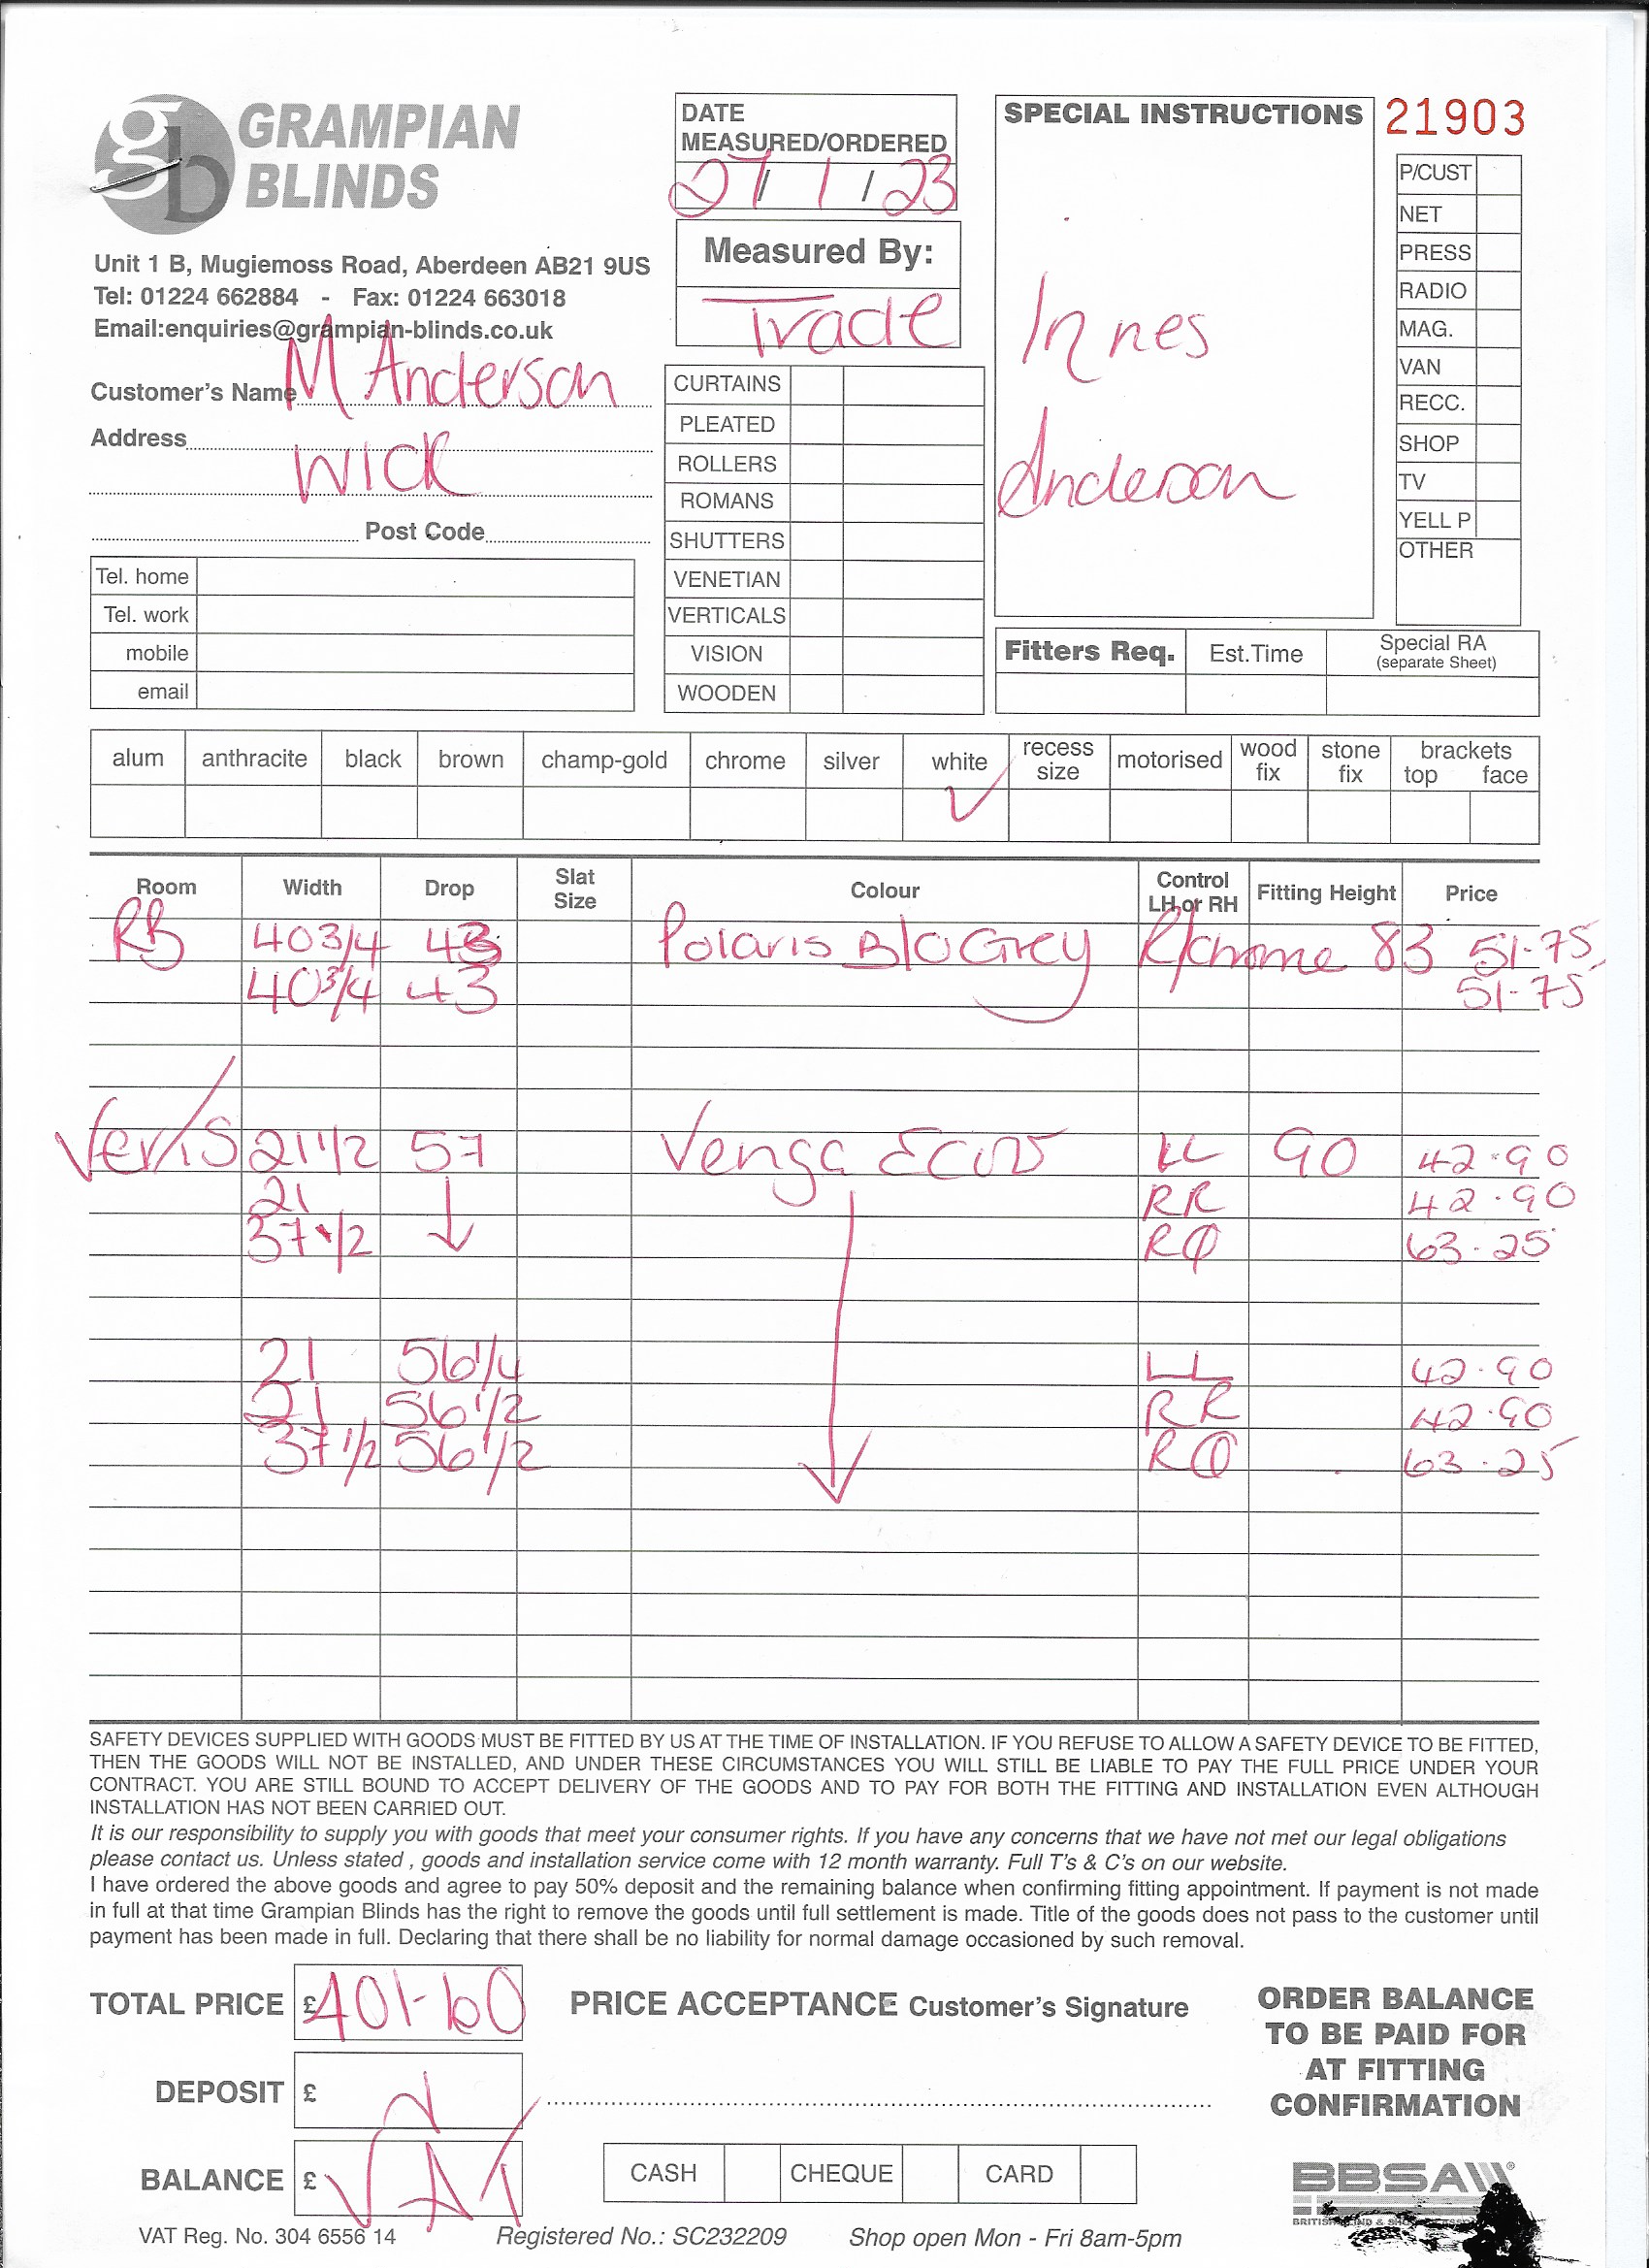 GRAMPIAN
BLINDS
Unit 1 B, Mugiemoss Road, Aberdeen AB21 9US
Tel: 01224 662884 - Fax: 01224 663018
Email:enquiries@grampian-blinds.co.uk
Customer's Name M Anderson
Address
Wick
Post Code
Tel. home
Tel. work
mobile
email
DATE
MEASURED/ORDERED
27/1/23
Measured By:
Trade
CURTAINS
PLEATED
ROLLERS
ROMANS
SHUTTERS
VENETIAN
VERTICALS
VISION
WOODEN
SPECIAL INSTRUCTIONS
Innes
Anderson
21903
P/CUST
NET
PRESS
RADIO
MAG.
VAN
RECC.
SHOP
TV
YELL P
OTHER
Fitters Req. Est.Time Special RA
(separate Sheet)
alum anthracite black brown champ-gold chrome silver white recess size motorised wood fix stone fix brackets top face
Room Width Drop Slat Size Colour Control LH or RH Fitting Height Price
RB 40 3/4 43 Polaris B/O Grey R/chrome 83 51-75
40 3/4 43 51-75
Verts 21 1/2 57 Venga LL 90 42.90
21 RR 42.90
37 1/2 63-25
21 56 1/4 LL 42.90
21 56 1/2 RR 42.90
37 1/2 56 1/2 63-25
SAFETY DEVICES SUPPLIED WITH GOODS MUST BE FITTED BY US AT THE TIME OF INSTALLATION. IF YOU REFUSE TO ALLOW A SAFETY DEVICE TO BE FITTED,
THEN THE GOODS WILL NOT BE INSTALLED, AND UNDER THESE CIRCUMSTANCES YOU WILL STILL BE LIABLE TO PAY THE FULL PRICE UNDER YOUR
CONTRACT. YOU ARE STILL BOUND TO ACCEPT DELIVERY OF THE GOODS AND TO PAY FOR BOTH THE FITTING AND INSTALLATION EVEN ALTHOUGH
INSTALLATION HAS NOT BEEN CARRIED OUT.
It is our responsibility to supply you with goods that meet your consumer rights. If you have any concerns that we have not met our legal obligations
please contact us. Unless stated , goods and installation service come with 12 month warranty. Full T's & C's on our website.
I have ordered the above goods and agree to pay 50% deposit and the remaining balance when confirming fitting appointment. If payment is not made
in full at that time Grampian Blinds has the right to remove the goods until full settlement is made. Title of the goods does not pass to the customer until
payment has been made in full. Declaring that there shall be no liability for normal damage occasioned by such removal.
TOTAL PRICE £401-60
PRICE ACCEPTANCE Customer's Signature
DEPOSIT £
BALANCE £ VAT
CASH CHEQUE CARD
ORDER BALANCE
TO BE PAID FOR
AT FITTING
CONFIRMATION
BBSA
VAT Reg. No. 304 6556 14 Registered No.: SC232209 Shop open Mon - Fri 8am-5pm